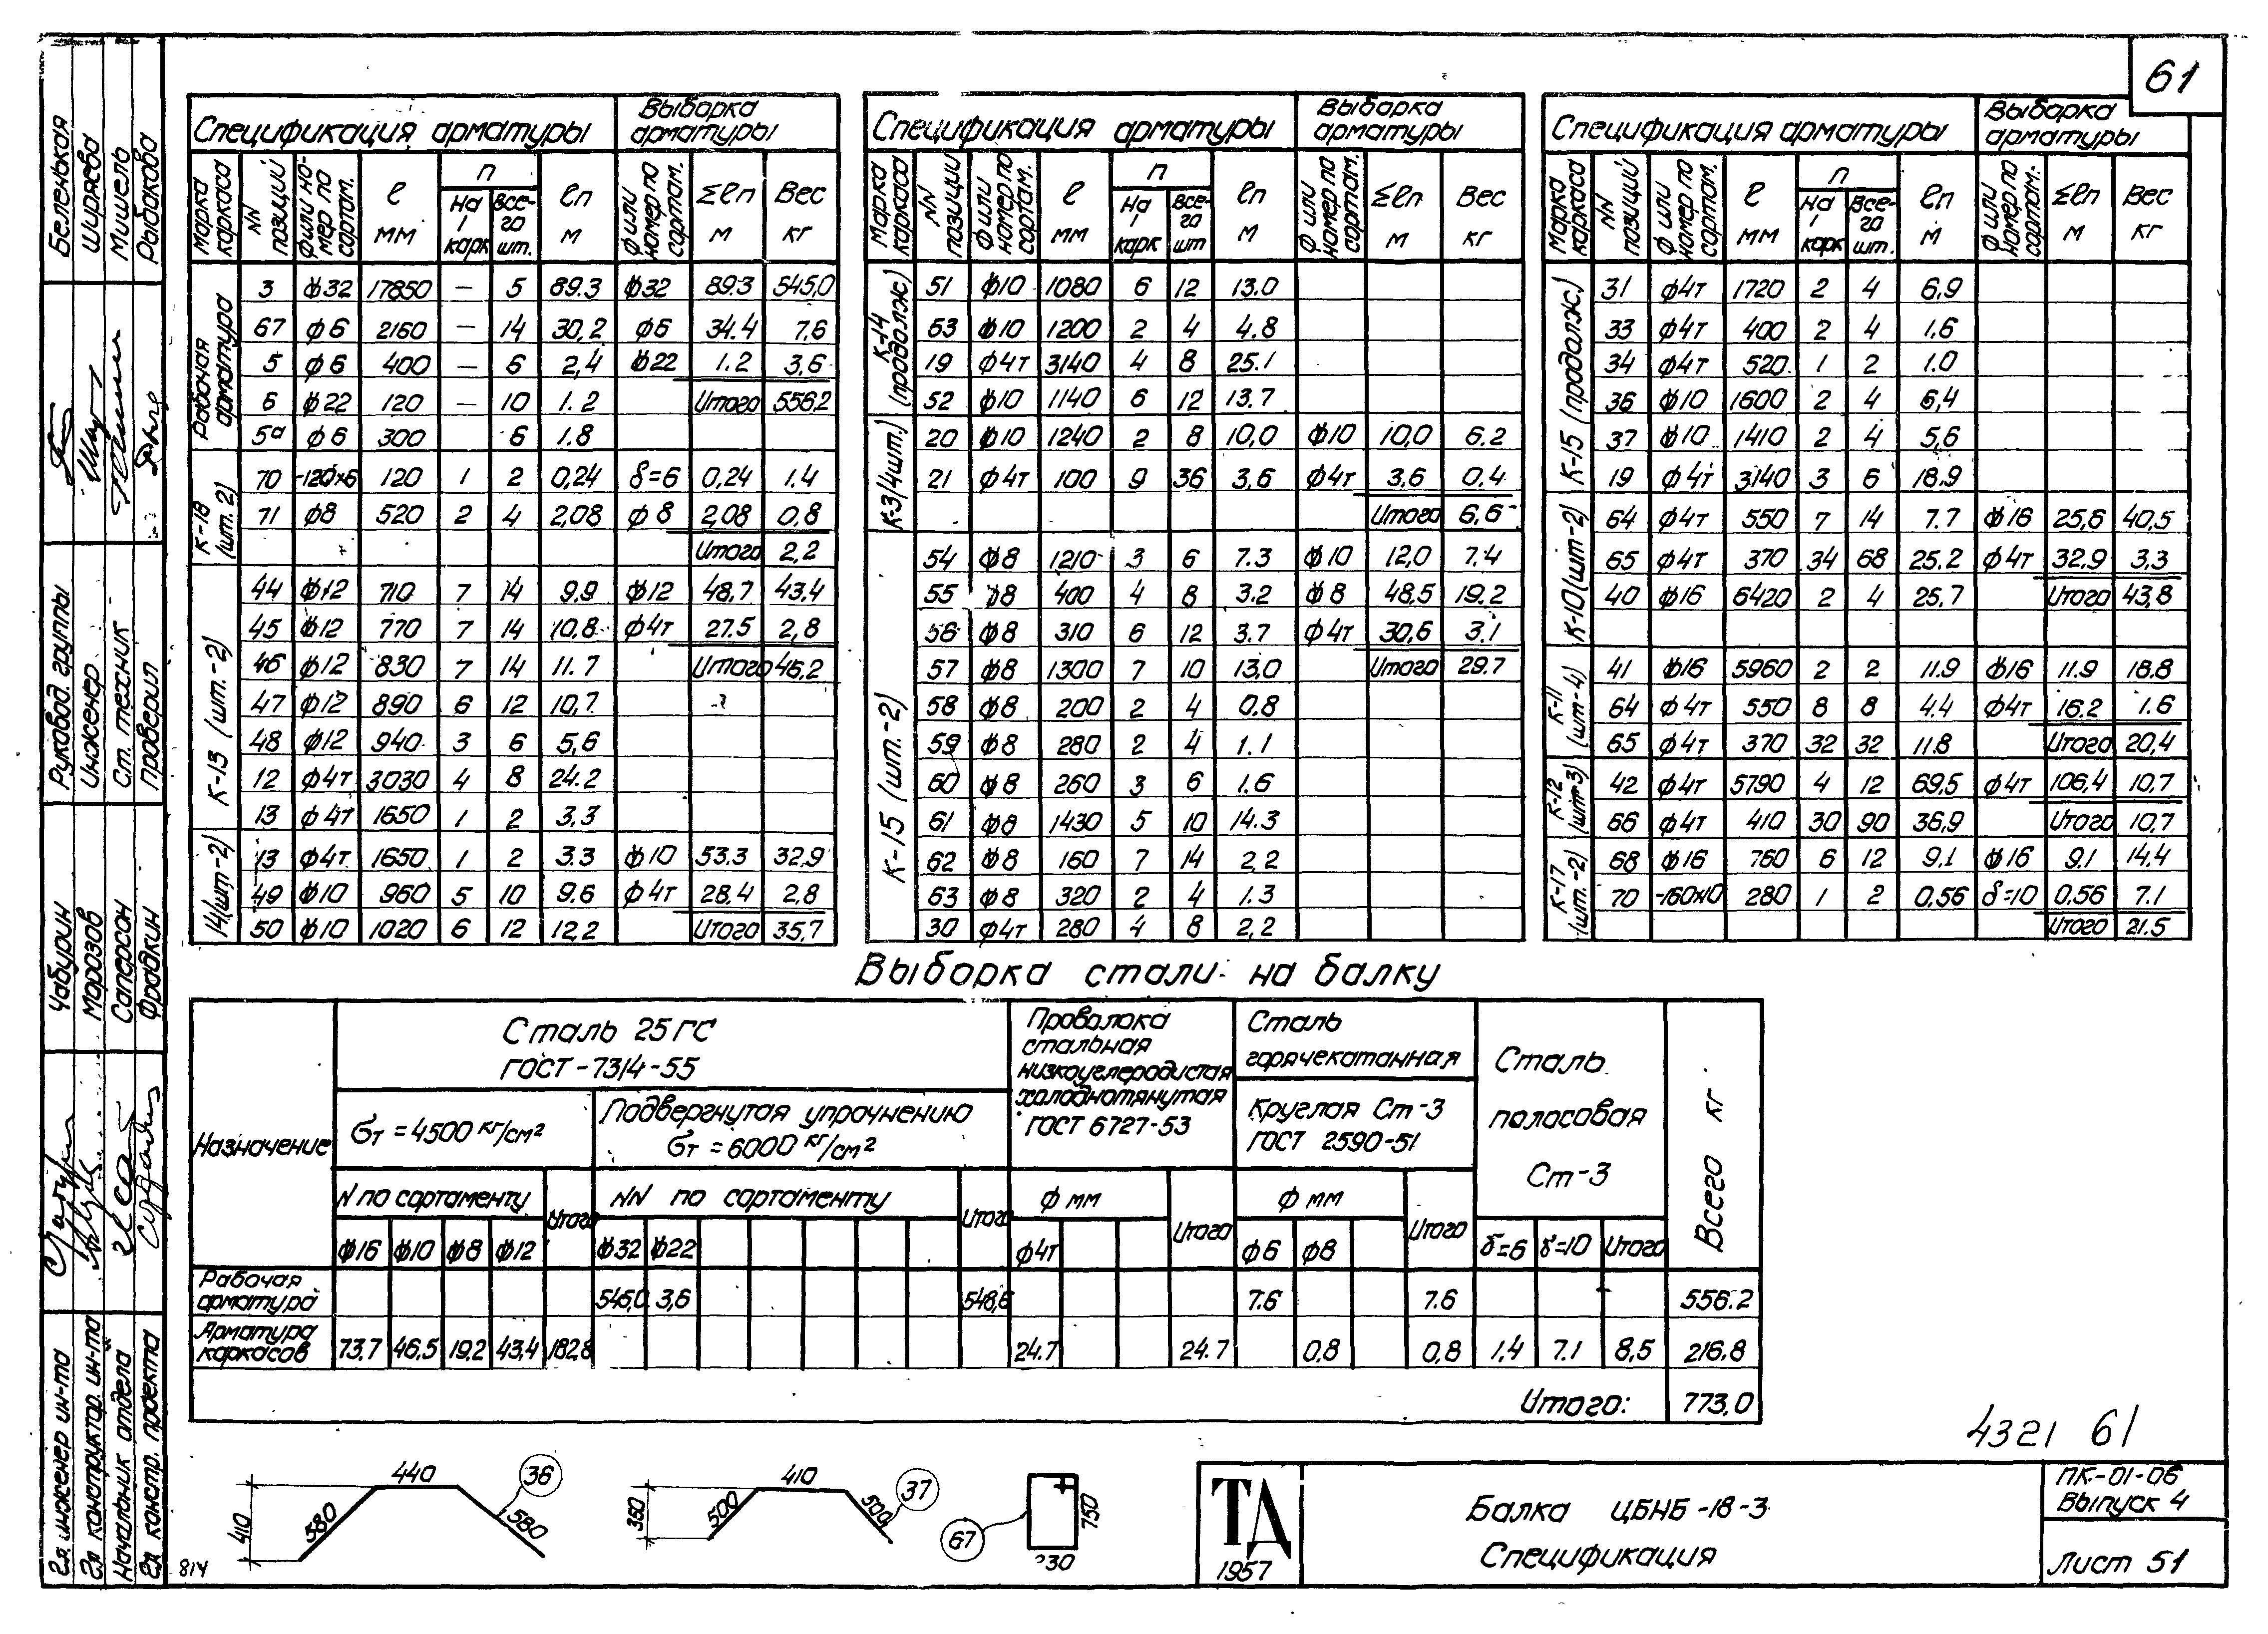 61
Спецификация арматуры | Выборка арматуры
Марка каркаса | NN позиций | Ф или номер по сортам. | ℓ мм | n На 1 карк | n Всего шт. | ℓn м | Ф или номер по сортам. | Σℓn м | Вес кг
Рабочая арматура
3 | ф32 | 17850 | — | 5 | 89.3 | ф32 | 89.3 | 545,0
67 | ф6 | 2160 | — | 14 | 30,2 | ф6 | 34.4 | 7.6
5 | ф6 | 400 | — | 6 | 2,4 | ф22 | 1.2 | 3,6
6 | ф22 | 120 | — | 10 | 1.2 | Итого | 556.2
5а | ф6 | 300 | 6 | 1.8
К-18 (шт. 2)
70 | -120×6 | 120 | 1 | 2 | 0,24 | δ=6 | 0,24 | 1.4
71 | ф8 | 520 | 2 | 4 | 2,08 | ф8 | 2,08 | 0,8
Итого | 2,2
К-13 (шт.-2)
44 | ф12 | 710 | 7 | 14 | 9.9 | ф12 | 48,7 | 43.4
45 | ф12 | 770 | 7 | 14 | 10,8 | ф4т | 27.5 | 2,8
46 | ф12 | 830 | 7 | 14 | 11.7 | Итого | 46,2
47 | ф12 | 890 | 6 | 12 | 10,7
48 | ф12 | 940 | 3 | 6 | 5,6
12 | ф4т | 3030 | 4 | 8 | 24.2
13 | ф4т | 1650 | 1 | 2 | 3,3
14(шт-2)
13 | ф4т | 1650 | 1 | 2 | 3.3 | ф10 | 53.3 | 32.9
49 | ф10 | 960 | 5 | 10 | 9.6 | ф4т | 28.4 | 2,8
50 | ф10 | 1020 | 6 | 12 | 12,2 | Итого | 35.7
Спецификация арматуры | Выборка арматуры
Марка каркаса | NN позиции | Ф или номер по сортам. | ℓ мм | n На 1 карк | n Всего шт | ℓn м | Ф или номер по сортам. | Σℓn м | Вес кг
К-14 (продолж)
51 | ф10 | 1080 | 6 | 12 | 13.0
63 | ф10 | 1200 | 2 | 4 | 4.8
19 | ф4т | 3140 | 4 | 8 | 25.1
52 | ф10 | 1140 | 6 | 12 | 13.7
К-3(4шт.)
20 | ф10 | 1240 | 2 | 8 | 10,0 | ф10 | 10,0 | 6.2
21 | ф4т | 100 | 9 | 36 | 3,6 | ф4т | 3,6 | 0,4
Итого | 6,6
К-15 (шт.-2)
54 | ф8 | 1210 | 3 | 6 | 7.3 | ф10 | 12,0 | 7.4
55 | ф8 | 400 | 4 | 8 | 3.2 | ф8 | 48,5 | 19.2
56 | ф8 | 310 | 6 | 12 | 3.7 | ф4т | 30,6 | 3.1
57 | ф8 | 1300 | 7 | 10 | 13,0 | Итого | 29.7
58 | ф8 | 200 | 2 | 4 | 0.8
59 | ф8 | 280 | 2 | 4 | 1.1
60 | ф8 | 260 | 3 | 6 | 1.6
61 | ф8 | 1430 | 5 | 10 | 14.3
62 | ф8 | 160 | 7 | 14 | 2,2
63 | ф8 | 320 | 2 | 4 | 1.3
30 | ф4т | 280 | 4 | 8 | 2,2
Спецификация арматуры | Выборка арматуры
Марка каркаса | NN позиций | Ф или номер по сортам. | ℓ мм | n На 1 карк | n Всего шт. | ℓn м | Ф или номер по сортам. | Σℓn м | Вес кг
К-15 (продолж.)
31 | ф4т | 1720 | 2 | 4 | 6,9
33 | ф4т | 400 | 2 | 4 | 1.6
34 | ф4т | 520 | 1 | 2 | 1.0
36 | ф10 | 1600 | 2 | 4 | 6,4
37 | ф10 | 1410 | 2 | 4 | 5,6
19 | ф4т | 3140 | 3 | 6 | 18,9
К-10(шт-2)
64 | ф4т | 550 | 7 | 14 | 7.7 | ф16 | 25,6 | 40,5
65 | ф4т | 370 | 34 | 68 | 25.2 | ф4т | 32.9 | 3.3
40 | ф16 | 6420 | 2 | 4 | 25.7 | Итого | 43,8
К-11 (шт-4)
41 | ф16 | 5960 | 2 | 2 | 11.9 | ф16 | 11.9 | 18.8
64 | ф4т | 550 | 8 | 8 | 4.4 | ф4т | 16.2 | 1.6
65 | ф4т | 370 | 32 | 32 | 11.8 | Итого | 20,4
К-12 (шт-3)
42 | ф4т | 5790 | 4 | 12 | 69,5 | ф4т | 106,4 | 10,7
66 | ф4т | 410 | 30 | 90 | 36,9 | Итого | 10,7
К-17 (шт.-2)
68 | ф16 | 760 | 6 | 12 | 9.1 | ф16 | 9.1 | 14.4
70 | -160×10 | 280 | 1 | 2 | 0,56 | δ=10 | 0,56 | 7.1
Итого | 21.5
Выборка стали на балку
Назначение | Сталь 25ГС ГОСТ-7314-55 | Проволока стальная низкоуглеродистая холоднотянутая ГОСТ 6727-53 | Сталь горячекатанная | Сталь полосовая Ст-3 | Всего кг
σт = 4500 кг/см² | Подвергнутая упрочнению σт = 6000 кг/см² | Круглая Ст-3 ГОСТ 2590-51
N по сортаменту | Итого | NN по сортаменту | Итого | ф мм | Итого | ф мм | Итого
ф16 | ф10 | ф8 | ф12 | ф32 | ф22 | ф4т | ф6 | ф8 | δ=6 | δ=10 | Итого
Рабочая арматура | 545,0 | 3,6 | 548,6 | 7.6 | 7.6 | 556.2
Арматура каркасов | 73.7 | 46,5 | 19.2 | 43,4 | 182,8 | 24.7 | 24.7 | 0,8 | 0,8 | 1,4 | 7.1 | 8,5 | 216.8
Итого: 773,0
440 36
410 580 580
410 37
360 500 500
67 750
4321 61
ТД
1957
Балка ЦБНБ-18-3
Спецификация
ПК-01-06
Выпуск 4
Лист 51
814
Беленькая
Ширяева
Мишель
Рыбакова
Руковод. группы
Инженер
Ст. техник
Проверил
Чабурин
Морозов
Саперсон
Фрадкин
Гл. инженер ин-та
Гл конструктор. ин-та
Начальник отдела
Гл констр. проекта